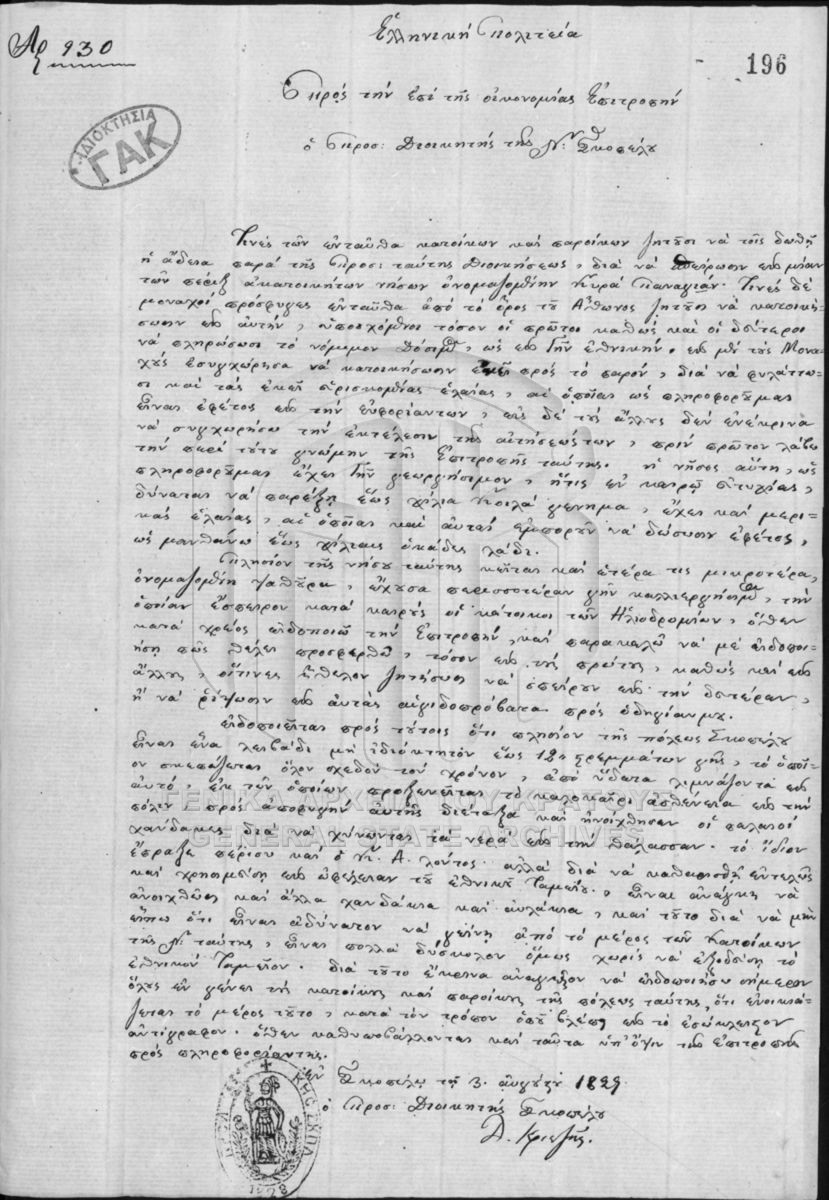 Ἑλληνική Πολιτεία
Αρ 930
196
Πρὸς τὴν ἐπὶ τῆς οἰκονομίας Ἐπιτροπήν
ὁ Προσ: Διοικητής της Ν. Σκοπέλου
ΙΔΙΟΚΤΗΣΙΑ
ΓΑΚ
Τινὲς τῶν ἐνταῦθα κατοίκων καὶ παροίκων ζητοῦσι νὰ τοῖς δωθῇ
ἡ ἄδεια παρὰ τῆς Προσ: ταύτης Διοικήσεως, διὰ νὰ σπείρωσιν εἰς μίαν
τῶν πέριξ ἀκατοικήτων νήσων ὀνομαζομένην Κυρὰ Παναγιάν. Τινὲς δὲ
μοναχοὶ πρόσφυγες ἐνταῦθα ἀπὸ τὸ ὄρος τοῦ Ἄθωνος ζητοῦσι νὰ κατοική-
σωσιν εἰς αὐτήν, ὑποσχόμενοι τόσον οἱ πρῶτοι καθὼς καὶ οἱ δεύτεροι
νὰ πληρώσωσι τὸ νόμιμον δόσιμον, ὡς εἰς γῆν ἐθνικήν. εἰς μὲν τοὺς Μονα-
χοὺς ἐσυγχώρησα νὰ κατοικήσωσιν ἐκεῖ πρὸς τὸ παρόν, διὰ νὰ φυλάττω-
σι καὶ τὰς ἐκεῖ εὑρισκομένας ἐλαίας, αἱ ὁποῖαι ὡς πληροφοροῦμαι
εἶναι ἐφέτος εἰς τὴν εὐφορίαν των, εἰς δὲ τοὺς ἄλλους δὲν ἐνέκρινα
νὰ συγχωρήσω τὴν ἐκτέλεσιν τῆς αἰτήσεώς των, πρὶν πρῶτον λάβω
τὴν περὶ τούτου γνώμην τῆς Ἐπιτροπῆς ταύτης. ἡ νῆσος αὕτη, ὡς
πληροφοροῦμαι ἔχει γῆν γεωργήσιμον, ἥτις ἐν καιρῷ εὐτυχίας,
δύναται νὰ παρέξῃ ἕως χίλια κοιλὰ γέννημα, ἔχει καὶ μερι-
κὰς ἐλαίας, αἱ ὁποῖαι καὶ αὐταὶ ἐμποροῦν νὰ δώσουσιν ἐφέτος,
ὡς μανθάνω ἕως χίλιαις ὀκάδες λάδι.
Πλησίον τῆς νήσου ταύτης κεῖται καὶ ἑτέρα τις μικροτέρα,
ὀνομαζομένη Γαθοῦρα, ἔχουσα περισσοτέραν γῆν καλλιεργήσιμον, τὴν
ὁποίαν ἔσπειρον κατὰ καιροὺς οἱ κάτοικοι τῶν Ηλιοδρομίων, ὅθεν
κατὰ χρέος εἰδοποιῶ τὴν Ἐπιτροπήν, καὶ παρακαλῶ νὰ μὲ εἰδοποι-
ήσῃ πῶς θέλει προσφερθῶ, τόσον εἰς τοὺς πρώτους, καθὼς καὶ εἰς
ἄλλους, οἵτινες ἤθελον ζητήσουν νὰ σπείρουν εἰς τὴν δευτέραν,
ἢ νὰ ῥίψωσιν εἰς αὐτὰς αἰγιδοπρόβατα πρὸς ὁδηγίαν μου.
εἰδοποιεῖται πρὸς τούτοις ὅτι πλησίον τῆς πόλεως Σκοπέλου
εἶναι ἕνα λειβάδι μὴ ἰδιόκτητον ἕως 120 στρεμμάτων γῆς, τὸ ὁποῖ-
ον σκεπάζεται ὅλον σχεδὸν τὸν χρόνον, ἀπὸ ὕδατα λιμνάζοντα εἰς
αὐτό, ἐκ τῶν ὁποίων προξενεῖται τὸ καλοκαίρι ἀσθένεια εἰς τὴν
πόλιν πρὸς ἀποφυγὴν αὐτῆς διέταξα καὶ ἠνοίχθησαν οἱ παλαιοὶ
χάνδακες διὰ νὰ χύνωνται τὰ νερὰ εἰς τὴν θάλασσαν. τὸ ἴδιον
ἔπραξε πέρισυ καὶ ὁ Κ. Α. Λόντος. ἀλλὰ διὰ νὰ καθαρισθῇ ἐντελῶς
καὶ χρησιμεύσῃ εἰς ὠφέλειαν τοῦ ἐθνικοῦ Ταμείου, εἶναι ἀνάγκη νὰ
ἀνοιχθῶσι καὶ ἄλλα χανδάκια καὶ αὐλάκια, καὶ τοῦτο διὰ νὰ μὴν
εἴπω ὅτι εἶναι ἀδύνατον νὰ γείνῃ ἀπὸ τὸ μέρος τῶν κατοίκων
τῆς Ν. ταύτης, εἶναι πολλὰ δύσκολον ὅμως χωρὶς νὰ ἐξοδεύσῃ τὸ
ἐθνικὸν Ταμεῖον. διὰ τοῦτο ἔκρινα ἀναγκαῖον νὰ εἰδοποιήσω σήμερον
ὅλους ἐν γένει τοὺς κατοίκους καὶ παροίκους τῆς πόλεως ταύτης, ὅτι ἐνοικιά-
ζεται τὸ μέρος τοῦτο, κατὰ τὸν τρόπον ὁποῦ βλέπει εἰς τὸ ἐσώκλειστον
ἀντίγραφον. ὅθεν καθυποβάλλονται καὶ ταῦτα ὑπ' ὄψιν τῆς ἐπιτροπῆς
πρὸς πληροφορίαν της.
ἐν Σκοπέλῳ τῇ 3. αὐγούστου 1829
ὁ Προσ: Διοικητὴς Σκοπέλου
Δ. Κριεζῆς.
1828
ΓΕΝΙΚΑ ΑΡΧΕΙΑ ΤΟΥ ΚΡΑΤΟΥΣ
GENERAL STATE ARCHIVES